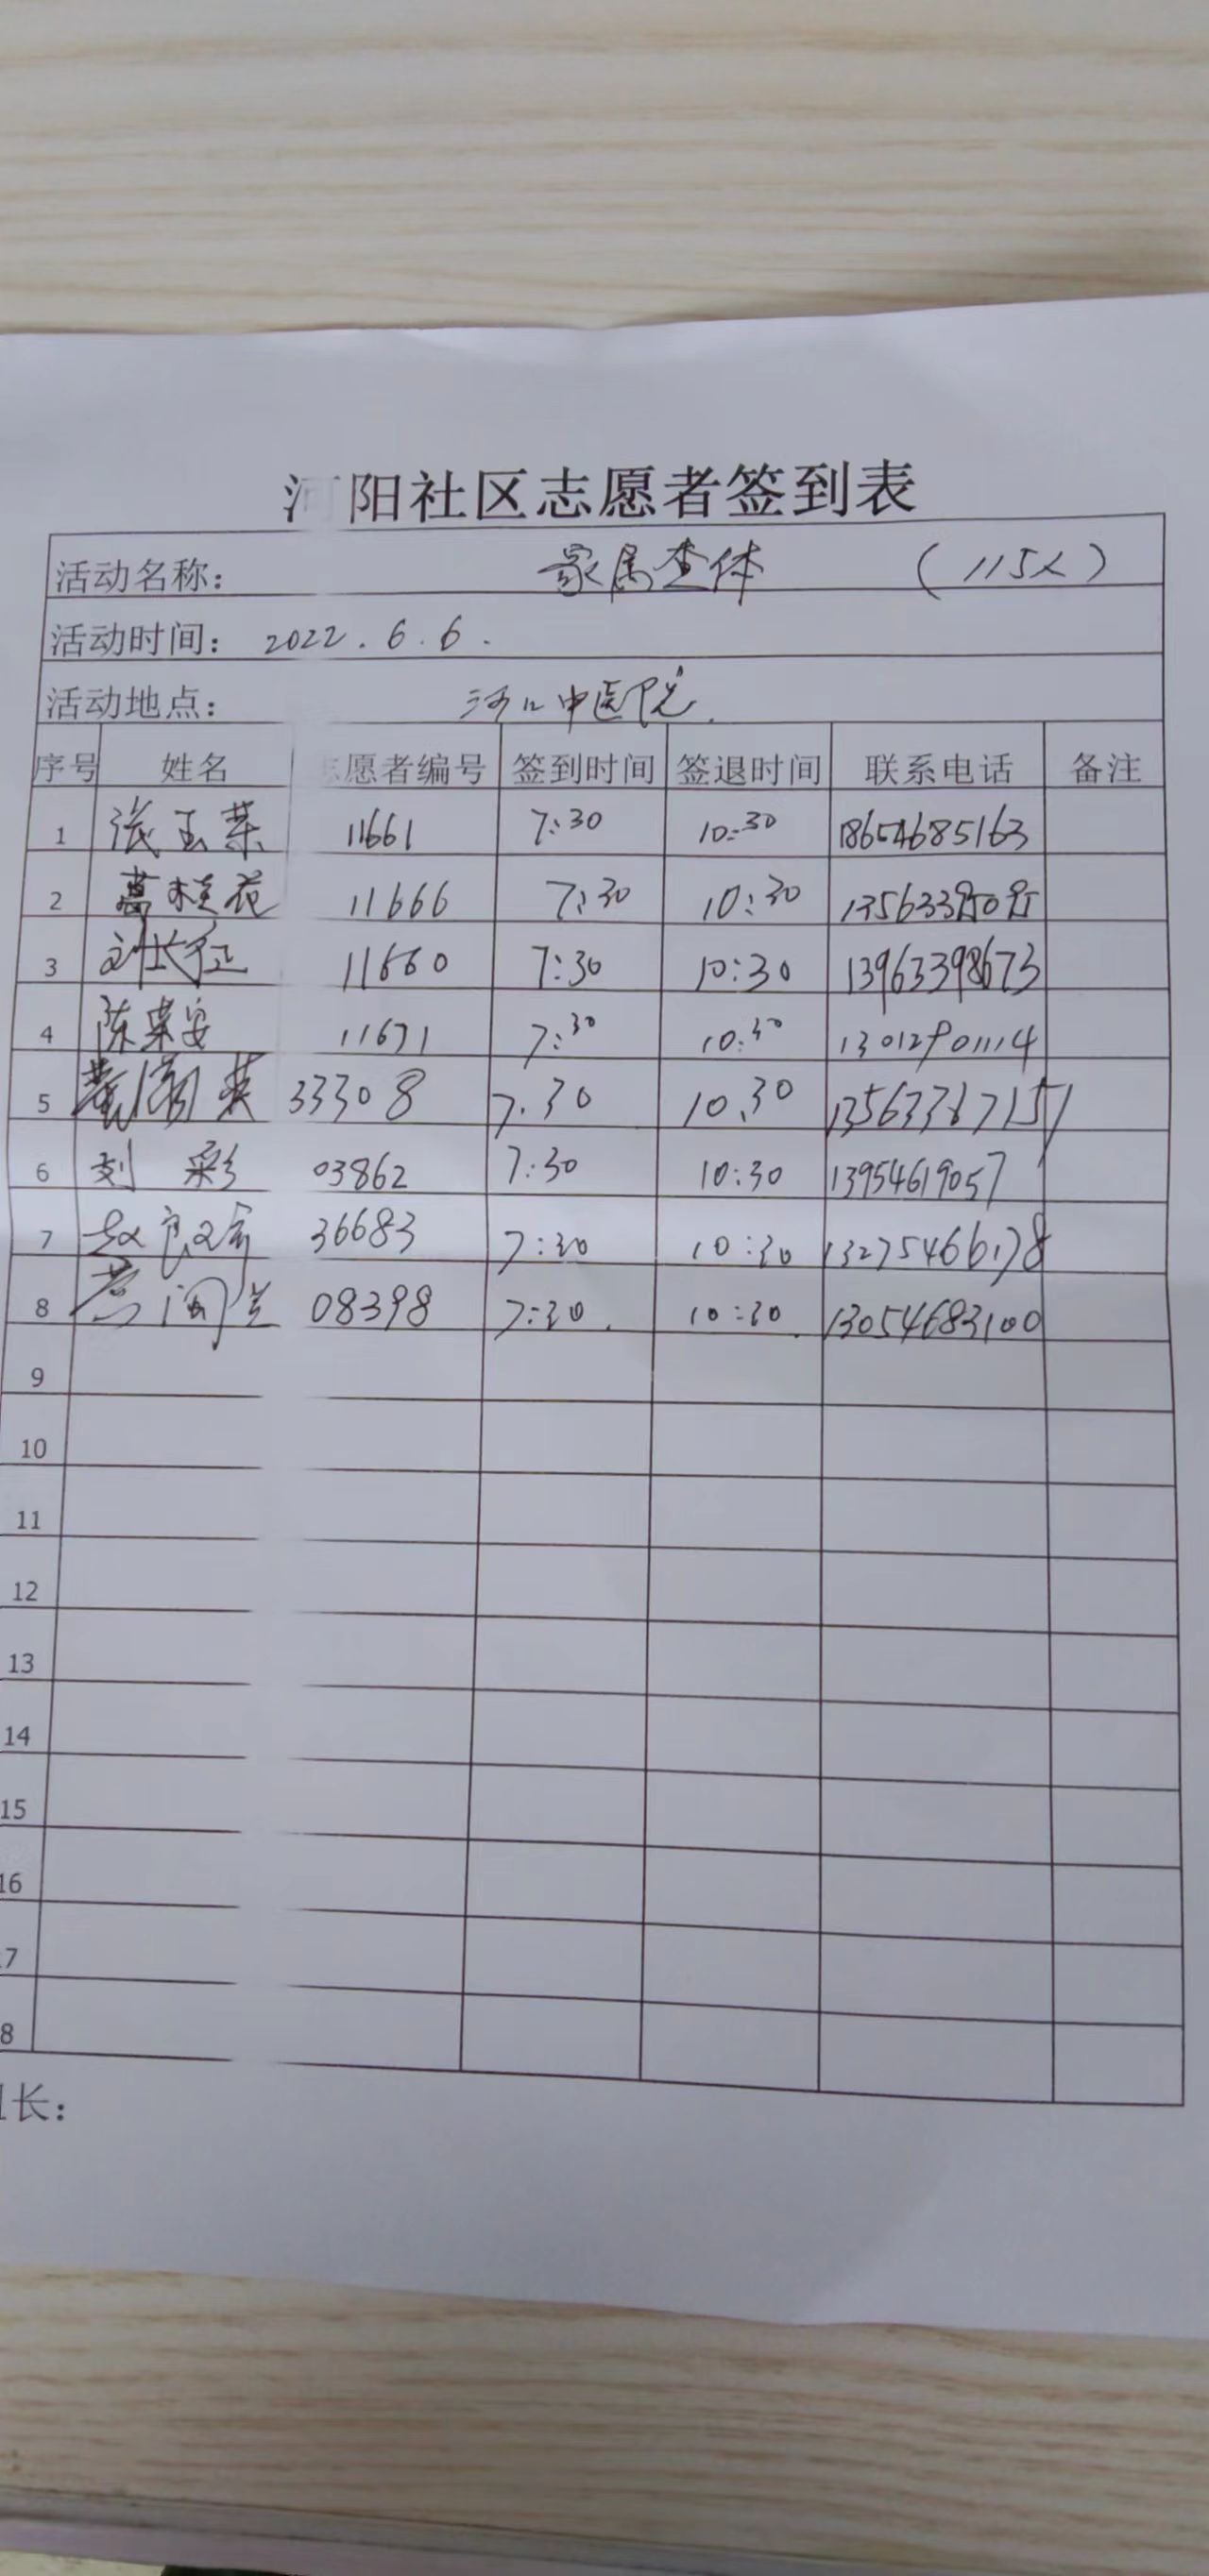 河阳社区志愿者签到表
活动名称： 家属查体 （115人）
活动时间： 2022.6.6.
活动地点： 河口中医院.
序号 姓名 志愿者编号 签到时间 签退时间 联系电话 备注
1 张玉荣 11661 7:30 10:30 18654685163
2 葛桂花 11666 7:30 10:30
3 刘长征 11660 7:30 10:30 13963398673
4 陈荣安 11671 7:30 10:30 13012901114
5 英 33308 7.30 10.30
6 刘彩 03862 7:30 10:30 13954619057
7 赵 36683 7:30 10:30 13275466178
8 兰 08398 7:30. 10:30. 13054683100
9
10
11
12
13
14
15
16
7
8
长：